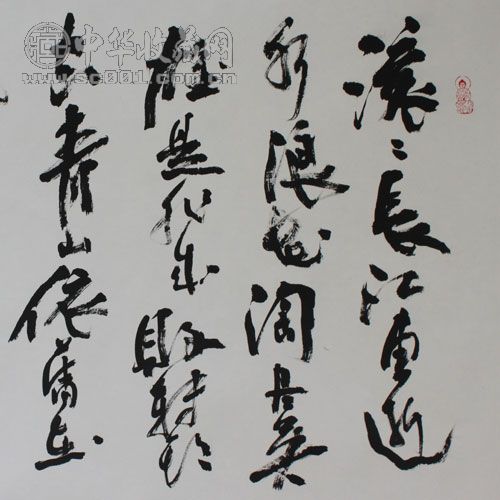 滚〻長江東逝
水浪花淘尽英
雄是非成败转头
空青山依舊在
中华收藏网
www.sc001.com.cn